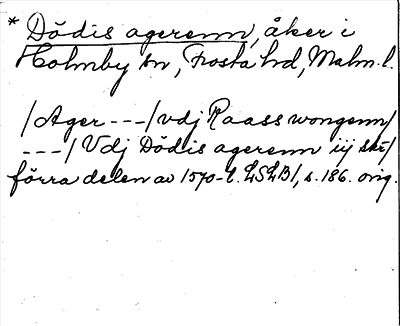 * Dödis agerenn, åker i
Holmby sn, Frosta hd, Malm. l.
/Ager - - -/ vdj Raass wongenn/
- - -/ Vdj Dödis agerenn iij skr/
förra delen av 1570-t. LSLB/, s. 186. orig.